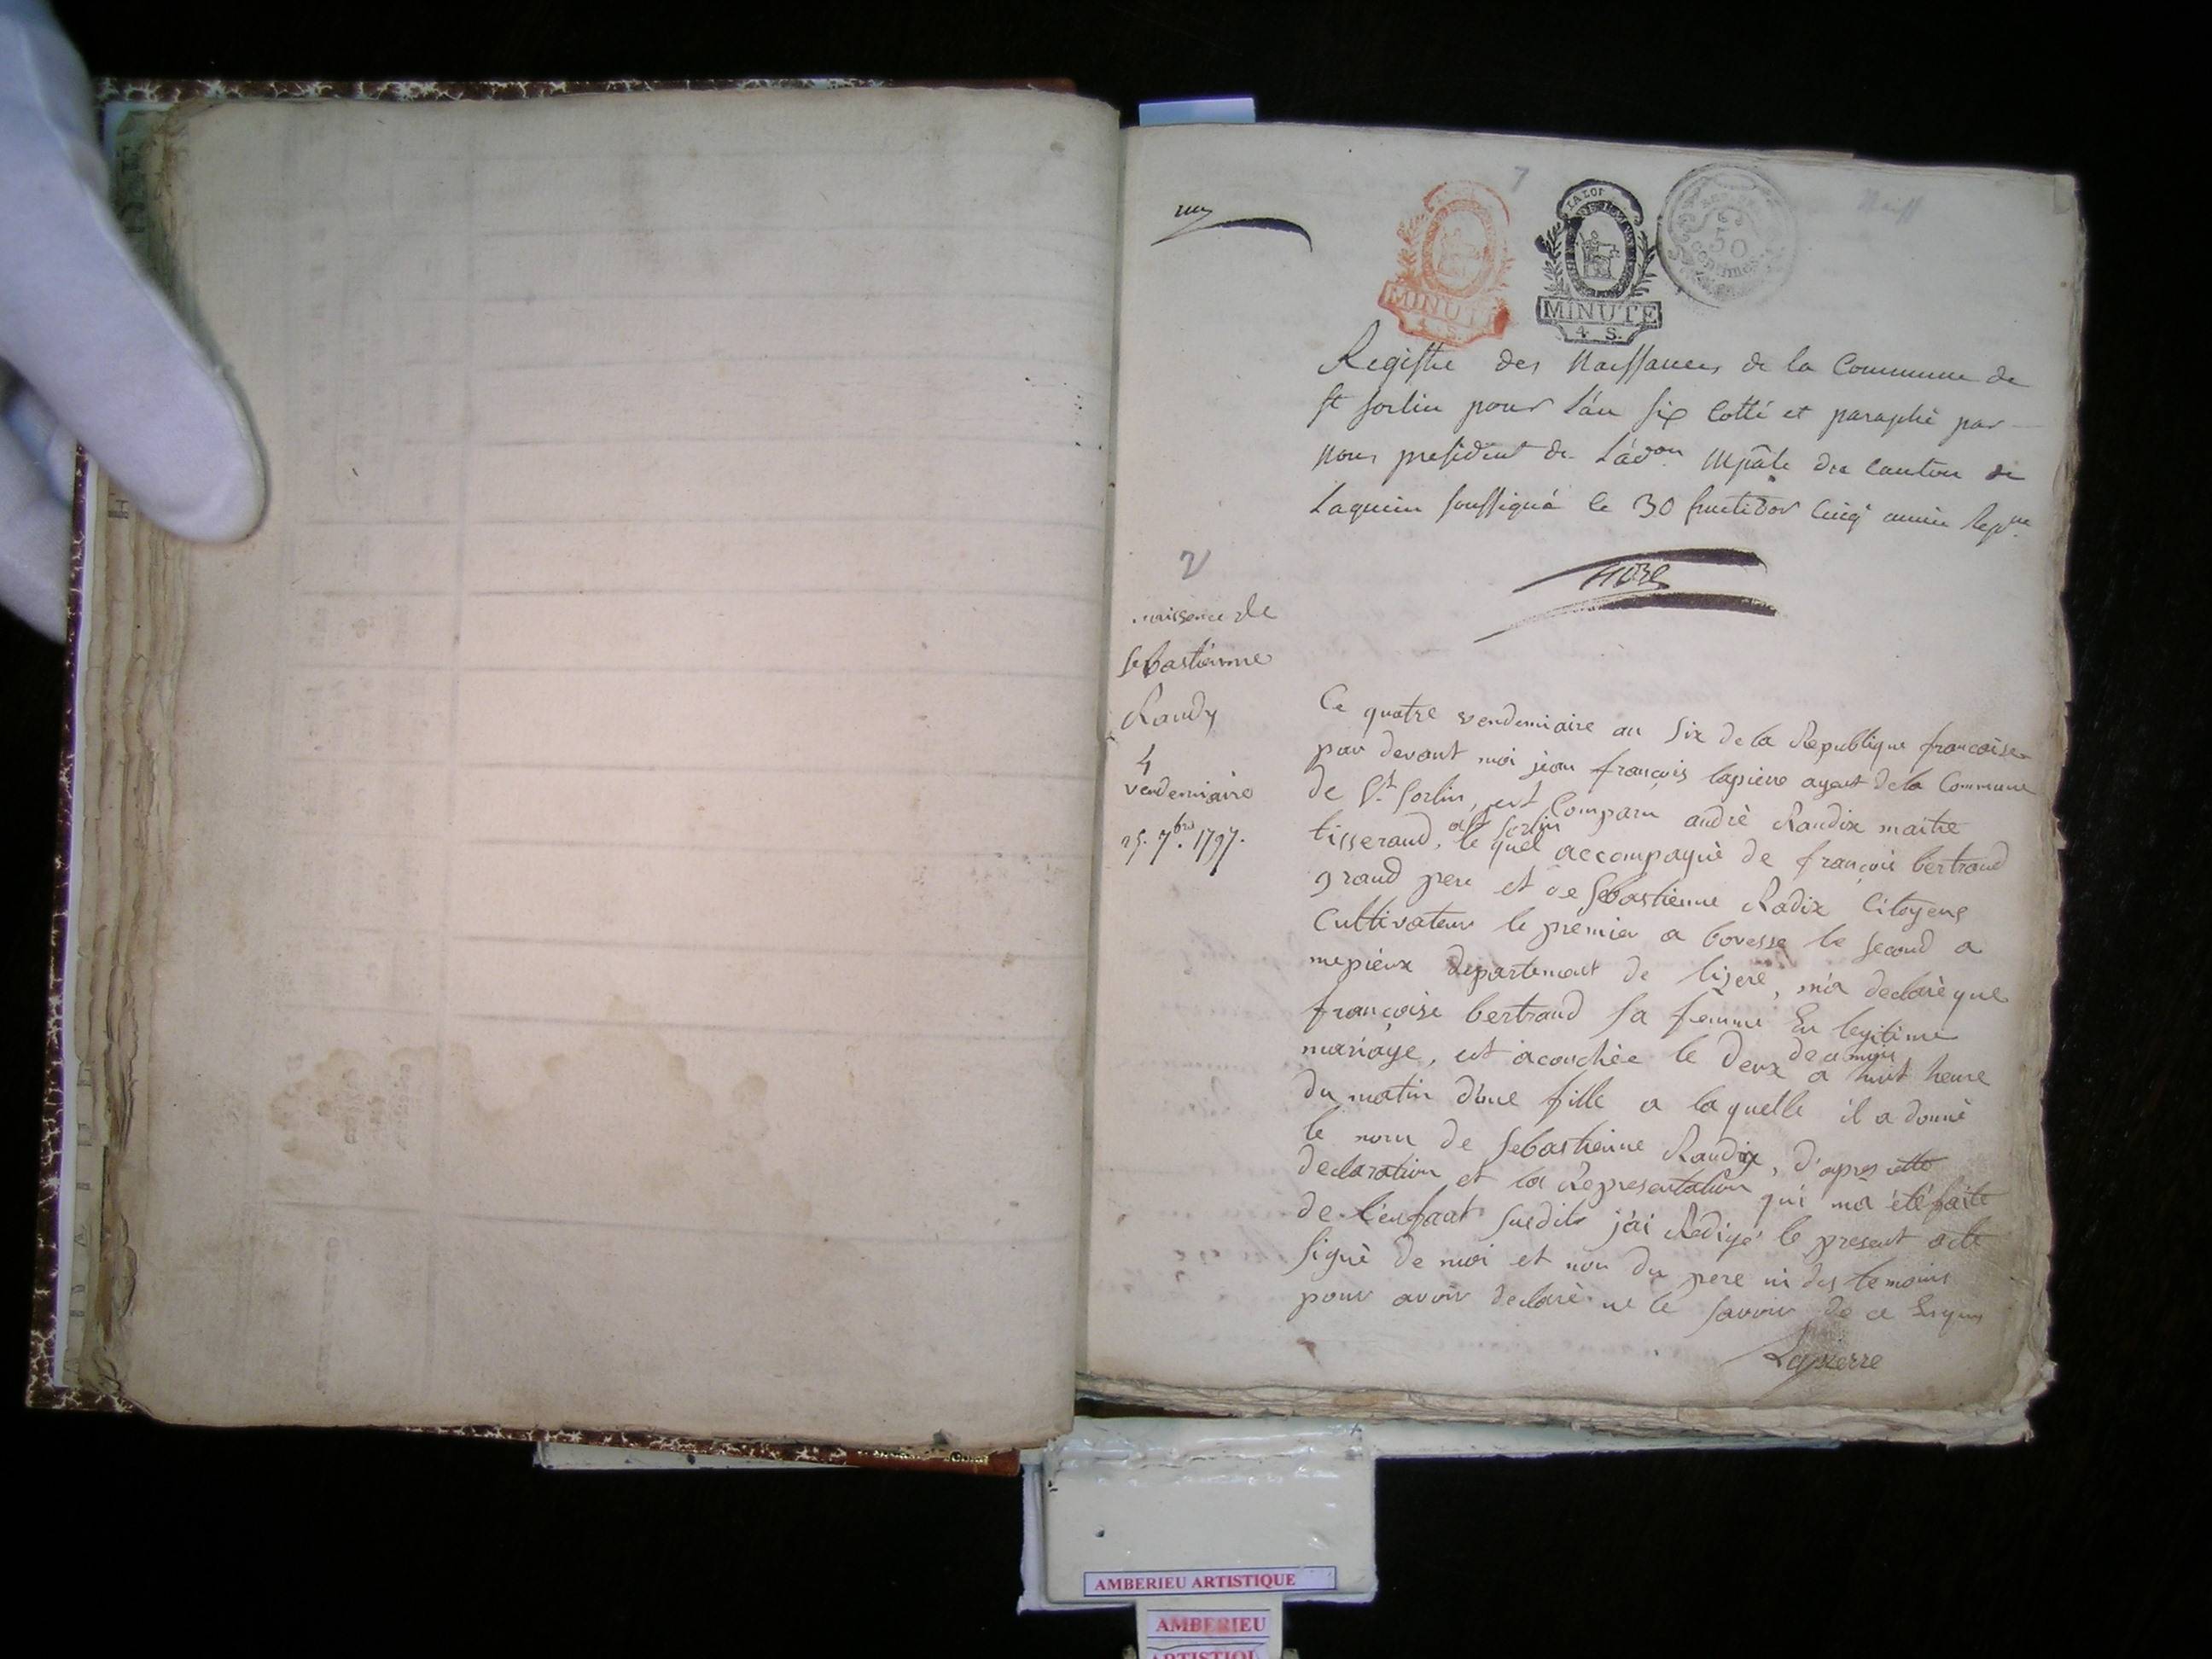 7
MINUTE
4. S.
MINUTE
4. S.
50
centimes
Registre des Naissances de la Commune de
St Sorlin pour l'an six Cotté et paraphé par
nous president de L'ad.on Mpâle du Canton de
Lagnieu soussigné le 30 fructidor Cinq année Rep.ne
2
naissance de
Sebastienne
Raudy
4
vendemiaire
25. 7.bre 1797.
Ce quatre vendemiaire an Six de la Republique francoise
par devant moi jean françois lapierre agent de la Commune
de St. Sorlin, est Comparu andrè Raudix maitre
tisserand, a St Sorlin le quel accompagnè de françois bertrand
grand pere et de Sebastienne Radix Citoyens
Cultivateur le premier a bovesse le second a
mepieux departement de lizere, m'a declarè que
françoise bertrand sa femme En legitime
mariage, est acouchèe le deux de a mois a huit heure
du matin d'une fille a laquelle il a donnè
le nom de Sebastienne Raudix, d'apres cette
declaration et la Representation qui ma été faite
de l'enfant susdit j'ai Redigé le present acte
signè de moi et non du pere ni des temoins
pour avoir declarè ne le savoir de ce Enquis
Lapierre
AMBERIEU ARTISTIQUE
AMBERIEU
ARTISTIQU